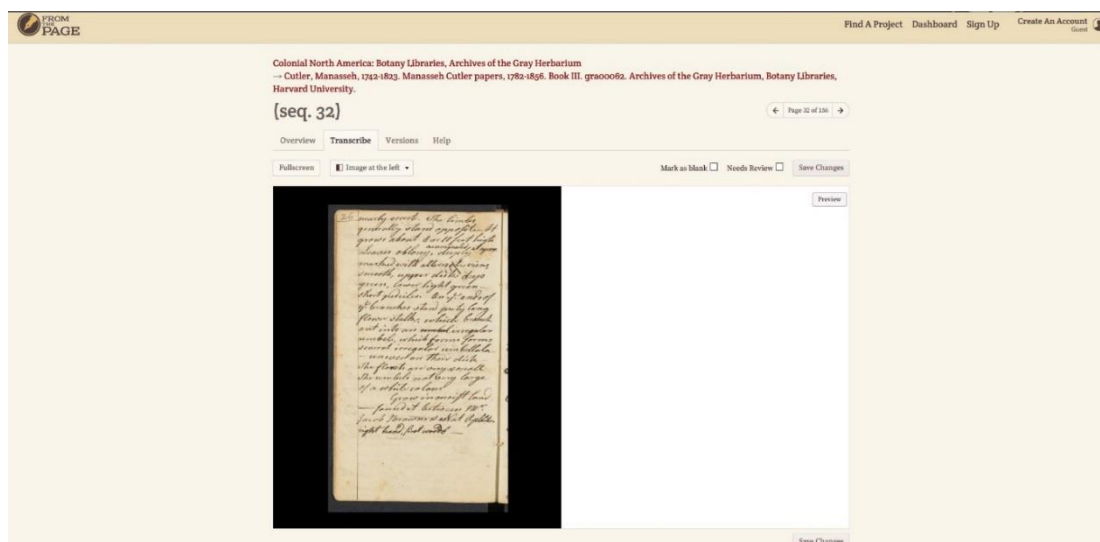 FROM
THE
PAGE
Find A Project Dashboard Sign Up Create An Account
Guest
Colonial North America: Botany Libraries, Archives of the Gray Herbarium
→ Cutler, Manasseh, 1742-1823. Manasseh Cutler papers, 1782-1856. Book III. gra00062. Archives of the Gray Herbarium, Botany Libraries,
Harvard University.
(seq. 32)
← Page 32 of 156 →
Overview Transcribe Versions Help
Fullscreen Image at the left Mark as blank Needs Review Save Changes
Preview
26 nearly erect. The limbs
generally stand opposite. It
grows about feet high
Leaves oblong,
marked with veins
smooth, upper disks deep
green, lower light green
short pedicles. On ye ends of
ye branches stand pretty long
flower stalks, which branch
out into an umbel irregular
umbel, which forms
several irregular umbellula
uneven on their disk
The florets are very small
The umbels not very large
of a white colour
Grows in moist land
found it between Mr.
Jacob Browns &
right hand, first woods
Save Changes